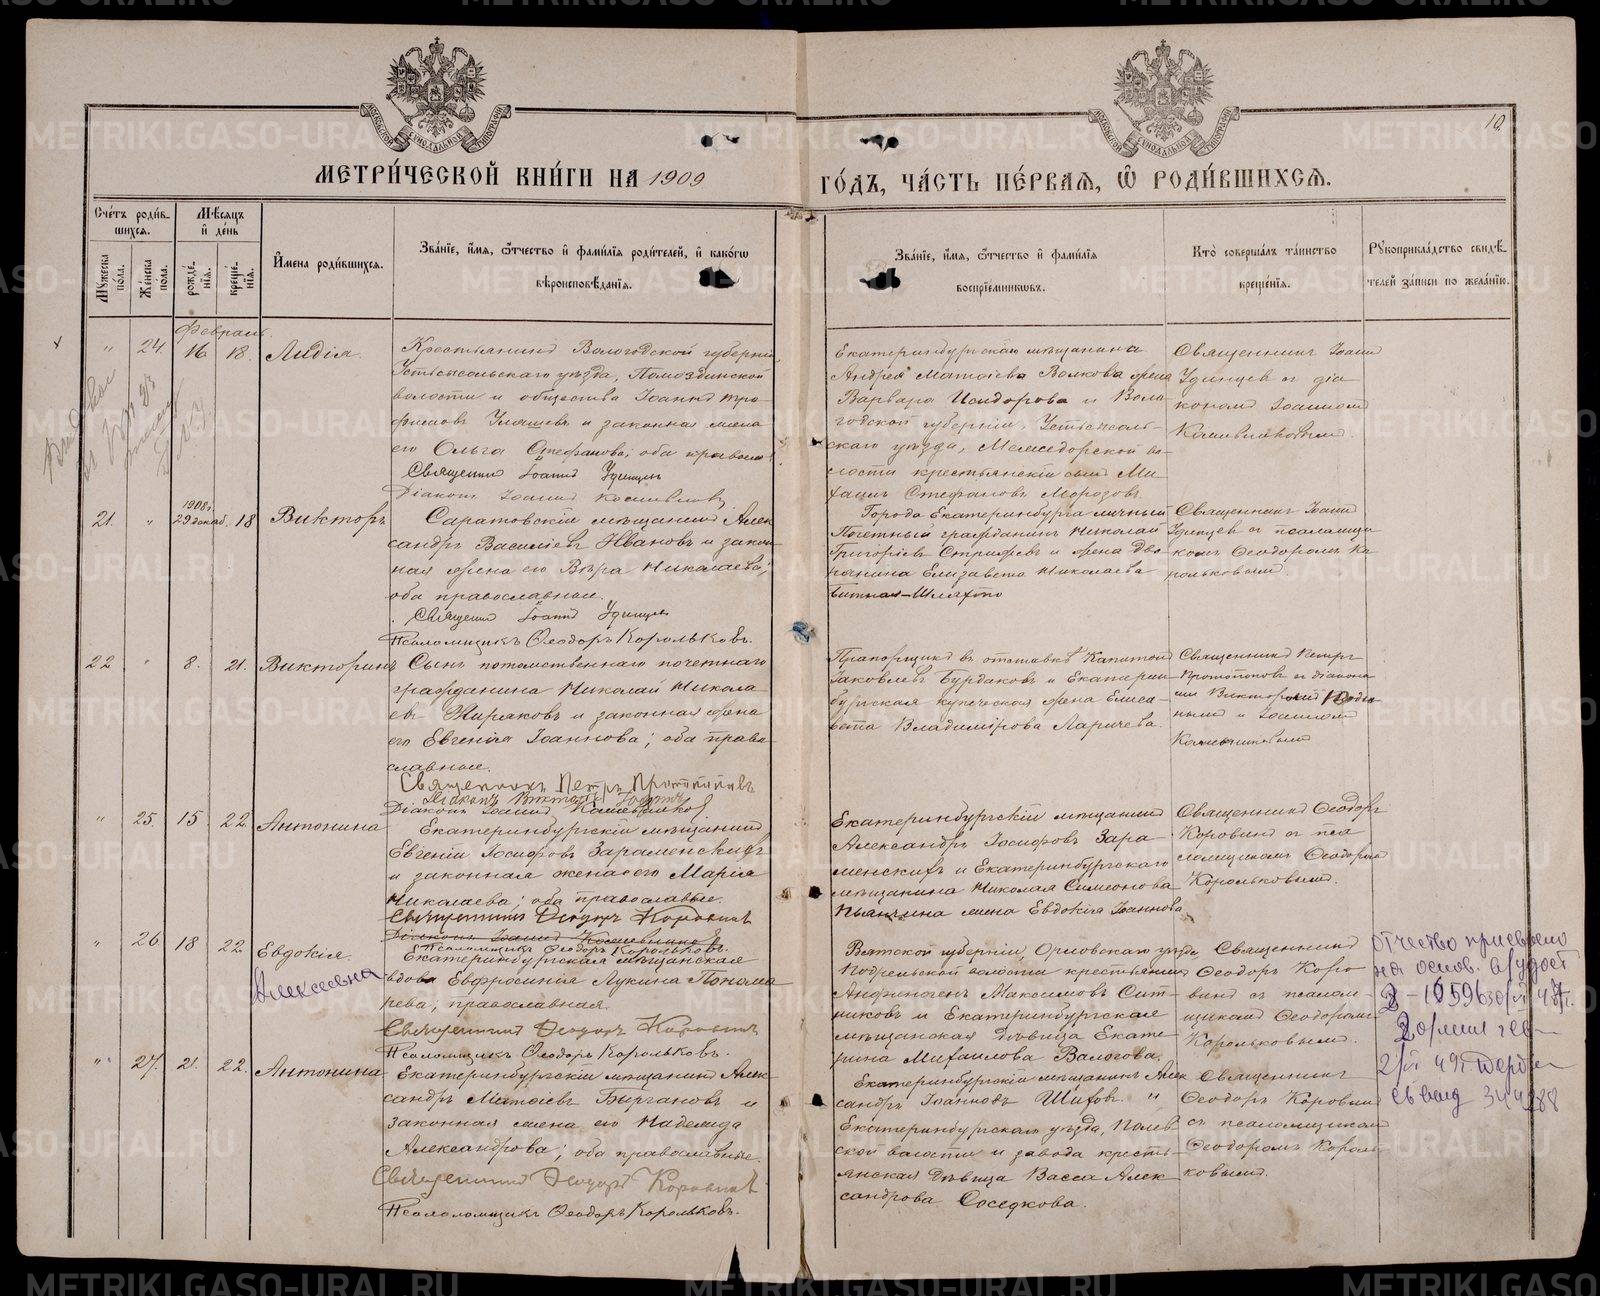 МЕТРИ́ЧЕСКОЙ КНИ́ГИ НА 1909
ГО́ДЪ, ЧА́СТЬ ПЕ́РВАѦ, Ѡ РОДИ́ВШИХСѦ.
10.
Сче́тъ роди́в-
шихсѧ.
Мѣ́сѧцъ
и де́нь
Му́жеска
по́ла.
Же́нска
по́ла.
рожде́-
нїѧ.
креще́-
нїѧ.
И́мена роди́вшихсѧ.
Зва́нїе, и́мѧ, о́тчество и фами́лїѧ роди́телей, и како́гѡ
вѣроисповѣ́данїѧ.
Зва́нїе, и́мѧ, о́тчество и фами́лїѧ
воспрїе́мникѡвъ.
Кто̀ соверша́лъ та́инство
креще́нїѧ.
Рукоприкла́дство свидѣ́-
телей за́писи по жела́нїю.
Февраль.
" 24. 16 18. Лидія.
Крестьянинъ Вологодской губерніи
Устьсысольскаго уѣзда, Помоздинской
волости и общества Іоаннъ Тро-
фимовъ Улашевъ и законная жена
его Ольга Стефанова; оба православ.
Священникъ Іоаннъ Удинцевъ
Діаконъ Іоаннъ
Екатеринбургскаго мѣщанина
Андрея Матѳіева Волкова жена
Варвара Исидорова и Воло-
годской губерніи, Устьсысоль-
скаго уѣзда, во-
лости крестьянскій сынъ Ми-
хаилъ Стефановъ Морозовъ.
Священникъ Іоаннъ
Удинцевъ съ діа-
кономъ Іоанномъ
21. " 1908 г. 29 декаб. 18 Викторъ
Саратовскій мѣщанинъ Алек-
сандръ Василіевъ Ивановъ и закон-
ная жена его Вѣра Николаева;
оба православные.
Священникъ Іоаннъ Удинцевъ
Псаломщикъ Ѳеодоръ Корольковъ.
Города Екатеринбурга личный
Почетный гражданинъ Николай
Григоріевъ Стрижевъ и жена дво-
рянина Елизавета Николаева
Битная-Шляхто
Священникъ Іоаннъ
Удинцевъ съ псаломщи-
комъ Ѳеодоромъ Ко-
рольковымъ.
22 " 8. 21. Викторинъ
Сынъ потомственнаго почетнаго
гражданина Николай Никола-
евъ Жиряковъ и законная жена
его Евгенія Іоаннова; оба право-
славные.
Священникъ Петръ Протопоповъ
Діаконъ Викторъ
Діаконъ Іоаннъ
Прапорщикъ въ отставкѣ Капитонъ
Іаковлевъ Бурдаковъ и Екатерин-
бургская купеческая жена Елиса-
вета Владимірова Ларичева.
Священникъ Петръ
Протопоповъ съ діакона-
ми
нымъ и Іоанномъ
" 25. 15 22. Антонина
Екатеринбургскій мѣщанинъ
Евгеній Іосифовъ Зараменскихъ
и законная жена его Марія
Николаева; оба православные.
Священникъ Ѳеодоръ Коровинъ
Псаломщикъ Ѳеодоръ Корольковъ.
Екатеринбургскій мѣщанинъ
Александръ Іосифовъ Зара-
менскихъ и Екатеринбургскаго
мѣщанина Николая Симеонова
Пьянзина жена Евдокія Іоаннова
Священникъ Ѳеодоръ
Коровинъ съ пса-
ломщикомъ Ѳеодоромъ
Корольковымъ.
" 26 18 22 Евдокія.
Алексеевна
Екатеринбургская мѣщанская
вдова Евфросинія Лукина Понома-
рева; православная.
Священникъ Ѳеодоръ Коровинъ
Псаломщикъ Ѳеодоръ Корольковъ.
Вятской губерніи, Орловскаго уѣзда,
Подрельской волости крестьянинъ
Анфиногенъ Максимовъ Сит-
никовъ и Екатеринбургская
мѣщанская дѣвица Екате-
рина Михаилова Валогова.
Священникъ
Ѳеодоръ Коро-
винъ съ псалом-
щикомъ Ѳеодоромъ
Корольковымъ.
отчество присвоено
на основ.
" 27. 21. 22. Антонина
Екатеринбургскій мѣщанинъ Алек-
сандръ Матѳіевъ Бычановъ и
законная жена его Надежда
Александрова; оба православные.
Священникъ Ѳеодоръ Коровинъ
Псаломщикъ Ѳеодоръ Корольковъ.
Екатеринбургскій мѣщанинъ Алек-
сандръ Іоанновъ Шиховъ и
Екатеринбургскаго уѣзда, Полев-
ской волости и завода кресть-
янская дѣвица Васса Алек-
сандрова Соседкова.
Священникъ
Ѳеодоръ Коровинъ
съ псаломщикомъ
Ѳеодоромъ Король-
ковымъ.
METRIKI.GASO-URAL.RU